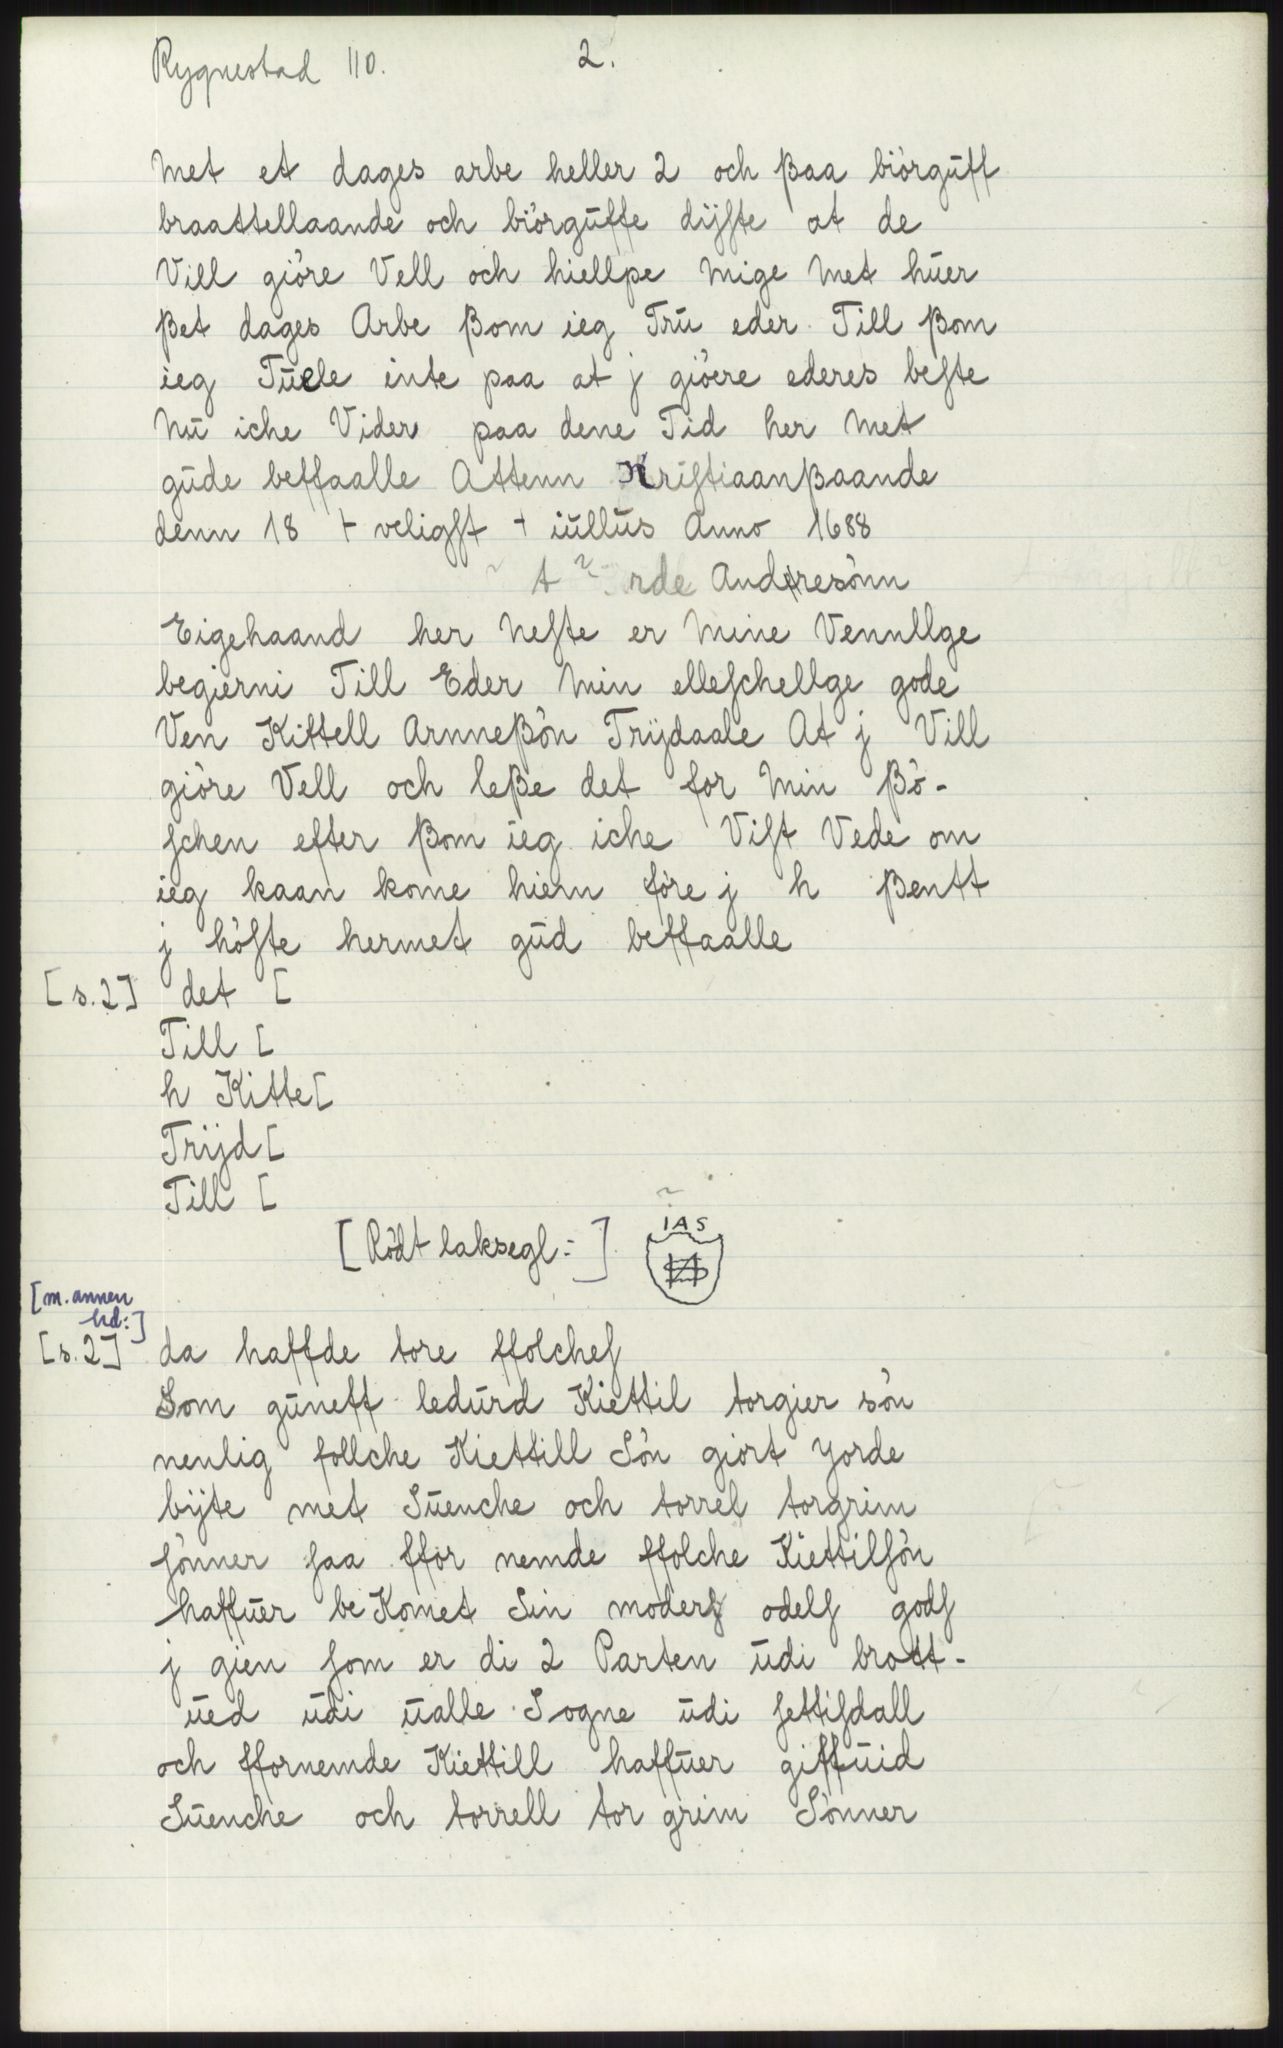 Rygnestad 110. 2.
Met et dages arbe heller 2 och ßaa biörguff
braattellaande och biörguffe dÿſte at de
Vill giöre Vell och hiellpe Mige Met huer
ßet dages Arbe ßom ieg Tru eder Till ßom
ieg Tuele inte paa at j giöere ederes beſte
Nu iche Vider paa dene Tid her Met
gude beffaalle Attenn Kriſtiaanßaande
denn 18 + veligſt + iullus Anno 1688
rde Anderesönn
Eigehaand her Neſte er Mine Vennllge
begierni Till Eder Min elleſchellge gode
Ven Kittell Arnneßön Trÿdaale At j Vill
giöre Vell och leße det for Min ßö-
ſchen efter ßom ieg iche Viſt Vede om
ieg kaan kome hiem före j h ßentt
j höſte hermet gud beffaalle
[s.2] det [
Till [
h Kitte[
Trÿd[
Till [
[Rödt laksegl: ] IAS
[m. annen
hd:]
[s.2] da haffde tore ffolcheſ
Som guneff ledurd Kiettil torgier sön
nenlig follche Kiettill Sön giört yorde
bÿte met Suenche och torrel torgrim
ſönner ſaa ffor nemde ffolche Kiettilſön
haffuer be Komet Sin moderſ odelſ godſ
j gien ſom er di 2 Parten udi bratt-
ued udi ualle Sogne udi ſettiſdall
och ffornemde Kiettill haffuer giffuid
Suenche och torrell tor grim Sönner